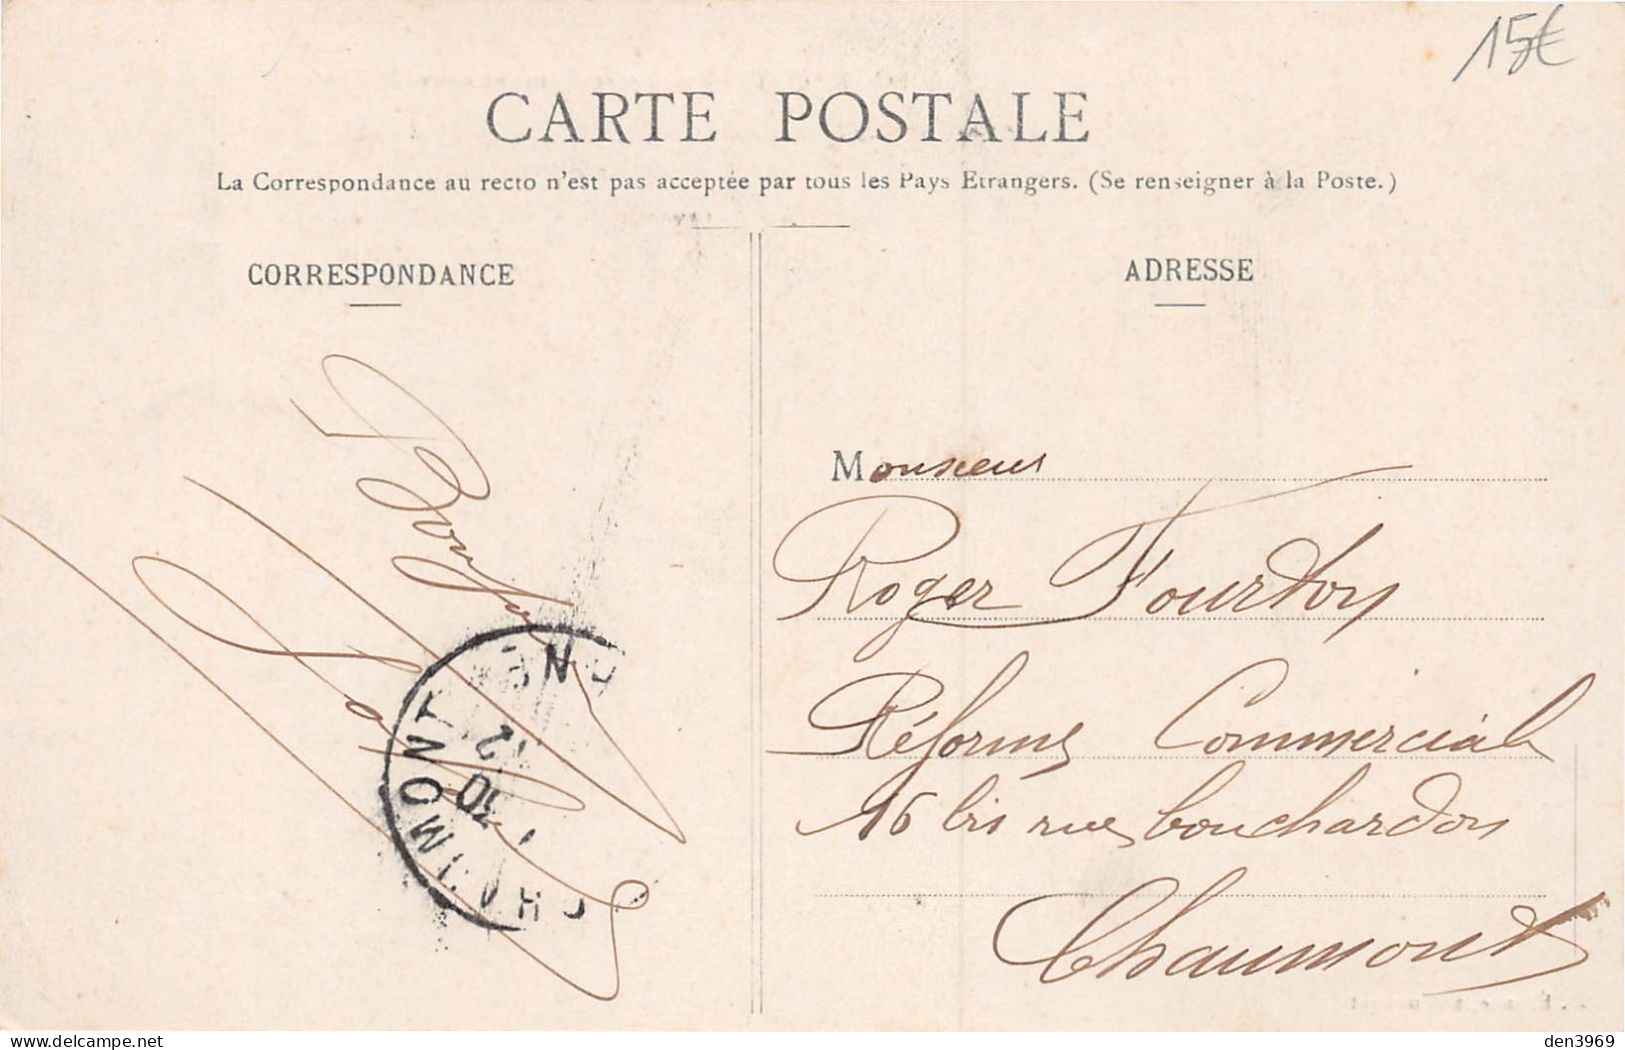 15€
CARTE POSTALE
La Correspondance au recto n'est pas acceptée par tous les Pays Etrangers. (Se renseigner à la Poste.)
CORRESPONDANCE
ADRESSE
Monsieur
Roger Fourdon
Réforme Commerciale
16 bis rue bouchardon
Chaumont
CHAUMONT
30
12
delcampe.net
den3969